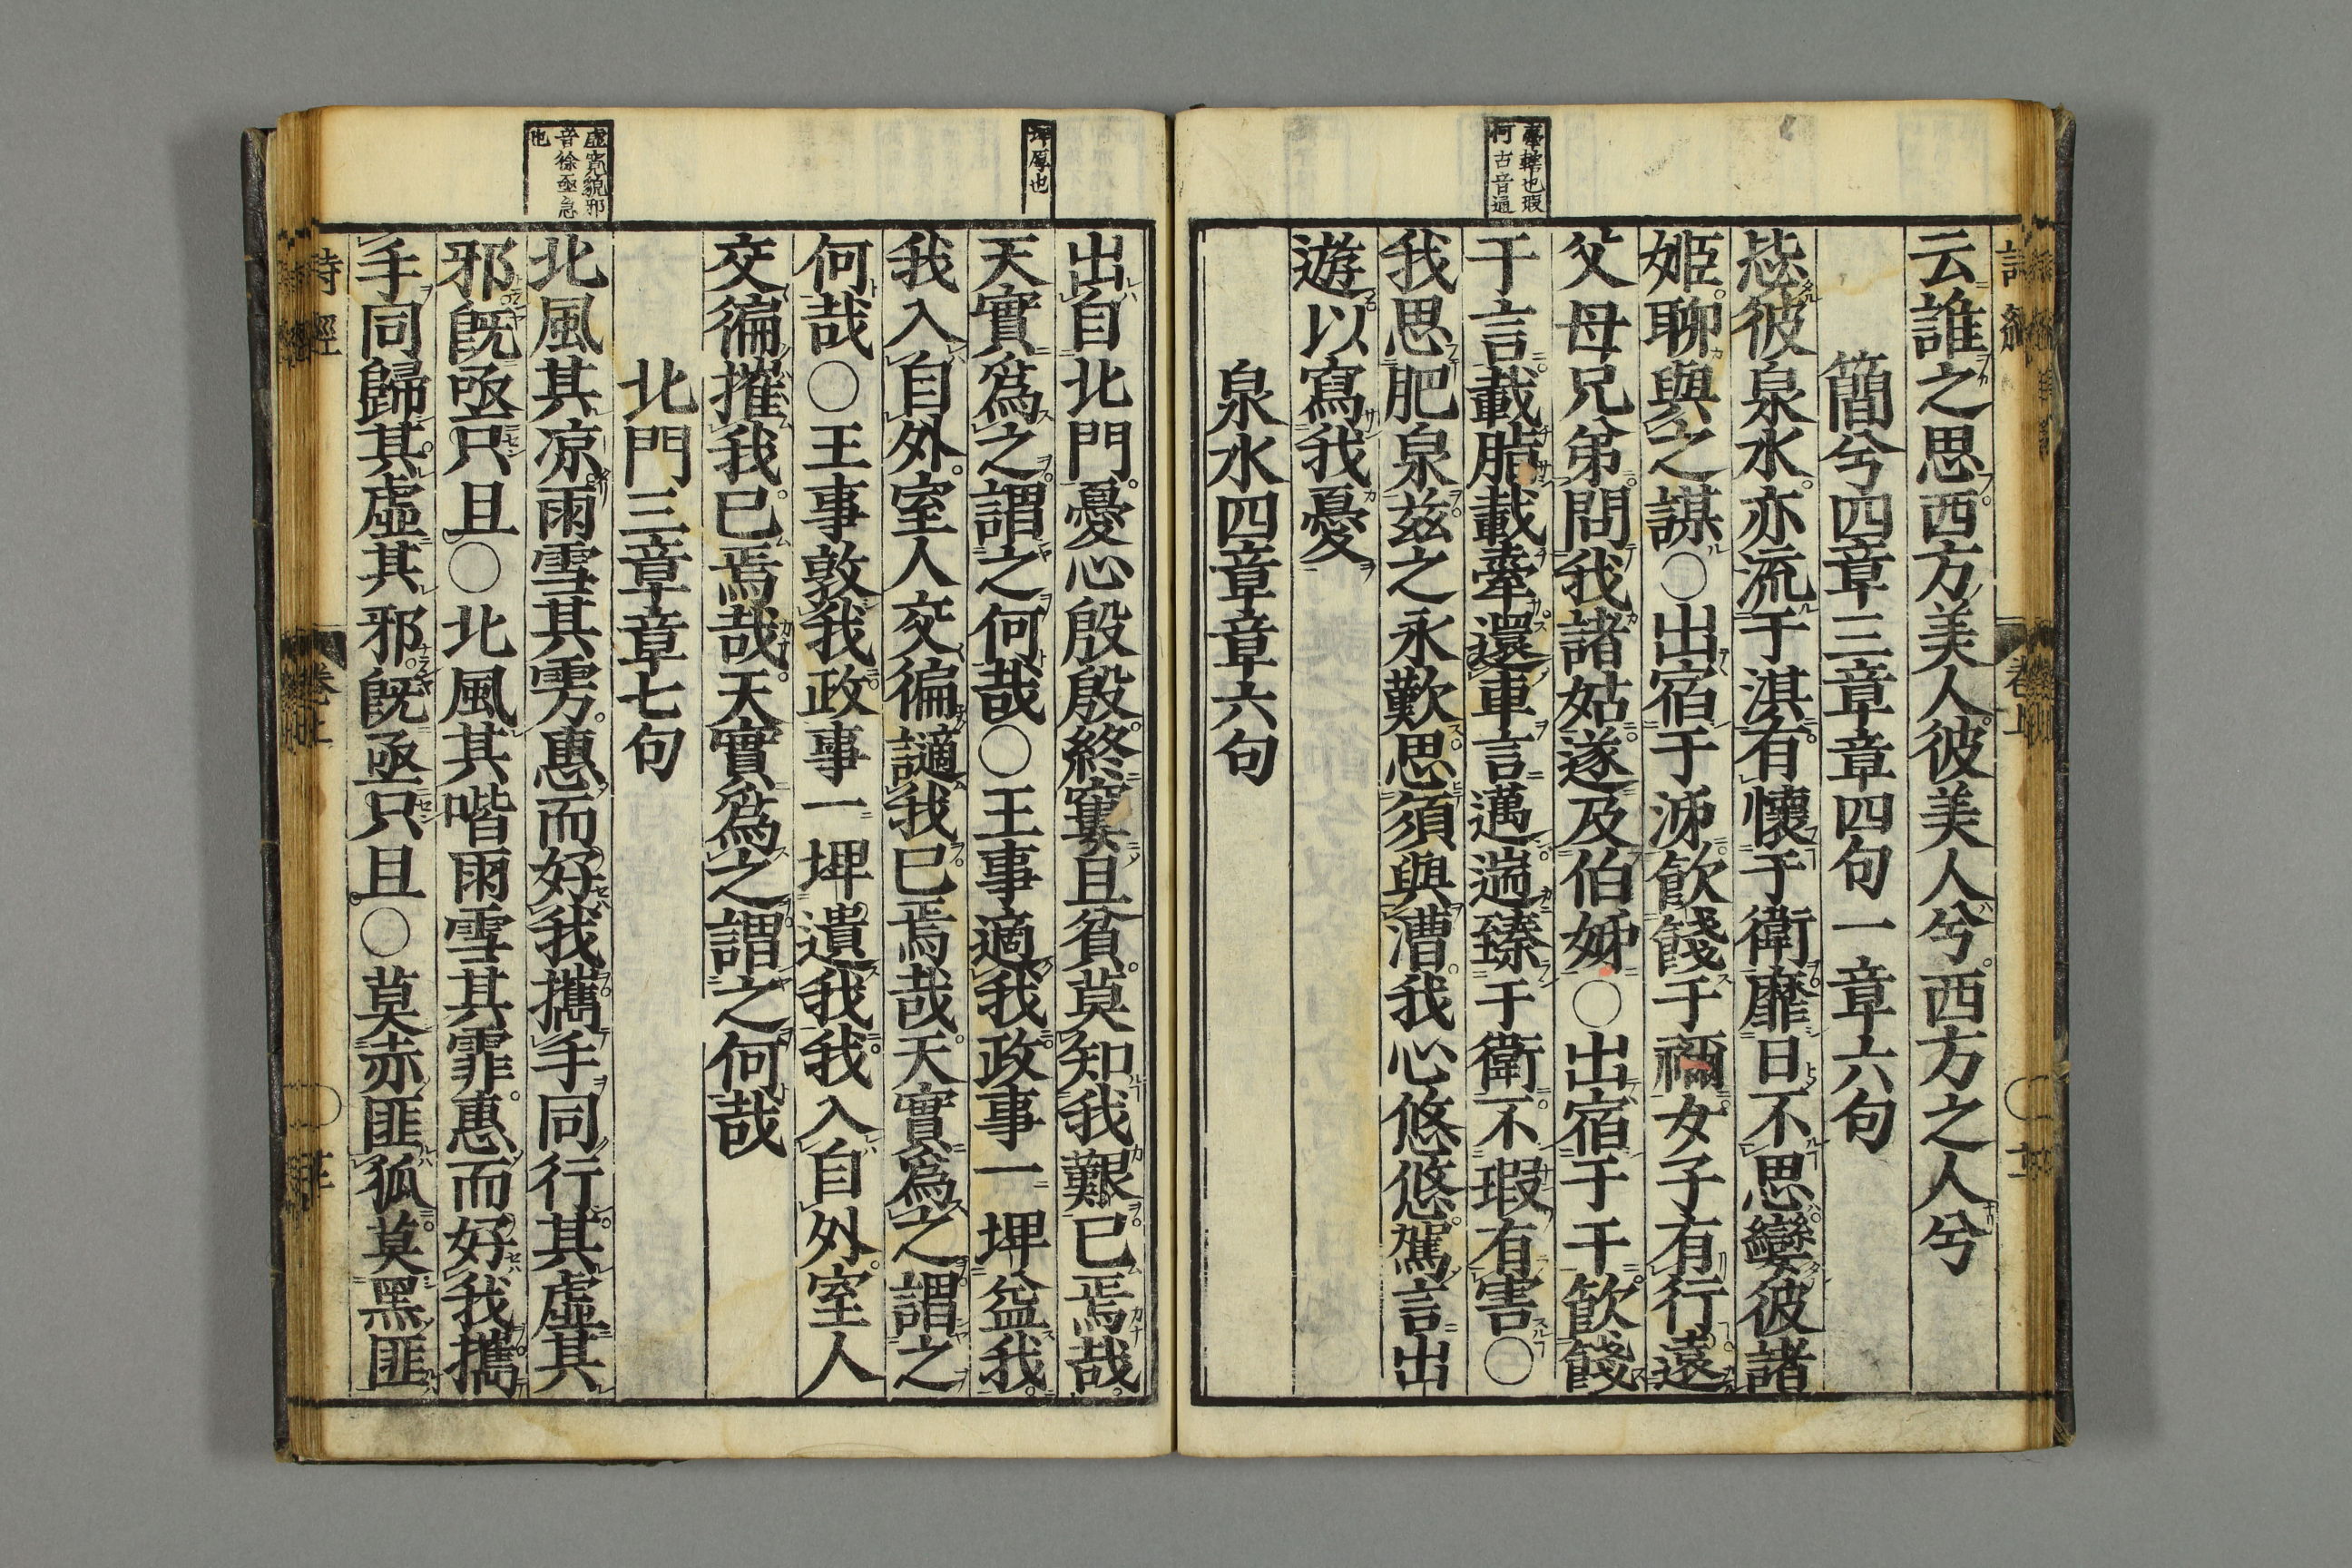 云誰之思西方美人彼美人兮西方之人兮
簡兮四章三章章四句一章六句
毖彼泉水亦流于淇有懷于衛靡日不思孌彼諸
姬聊與之謀○出宿于泲飮餞于禰女子有行遠
父母兄弟問我諸姑遂及伯姊○出宿于干飮餞
于言載脂載舝還車言邁遄臻于衛不瑕有害○
我思肥泉茲之永歎思須與漕我心悠悠駕言出
遊以寫我憂
泉水四章章六句
舝轄也瑕
何古音通
出自北門憂心殷殷終窶且貧莫知我艱已焉哉
天實爲之謂之何哉○王事適我政事一埤益我
我入自外室人交徧讁我已焉哉天實爲之謂之
何哉○王事敦我政事一埤遺我我入自外室人
交徧摧我已焉哉天實爲之謂之何哉
北門三章章七句
北風其凉雨雪其雱惠而好我攜手同行其虛其
邪旣亟只且○北風其喈雨雪其霏惠而好我攜
手同歸其虛其邪旣亟只且○莫赤匪狐莫黑匪
埤厚也
虛寬貌邪
音徐亟急
也
詩經
卷上